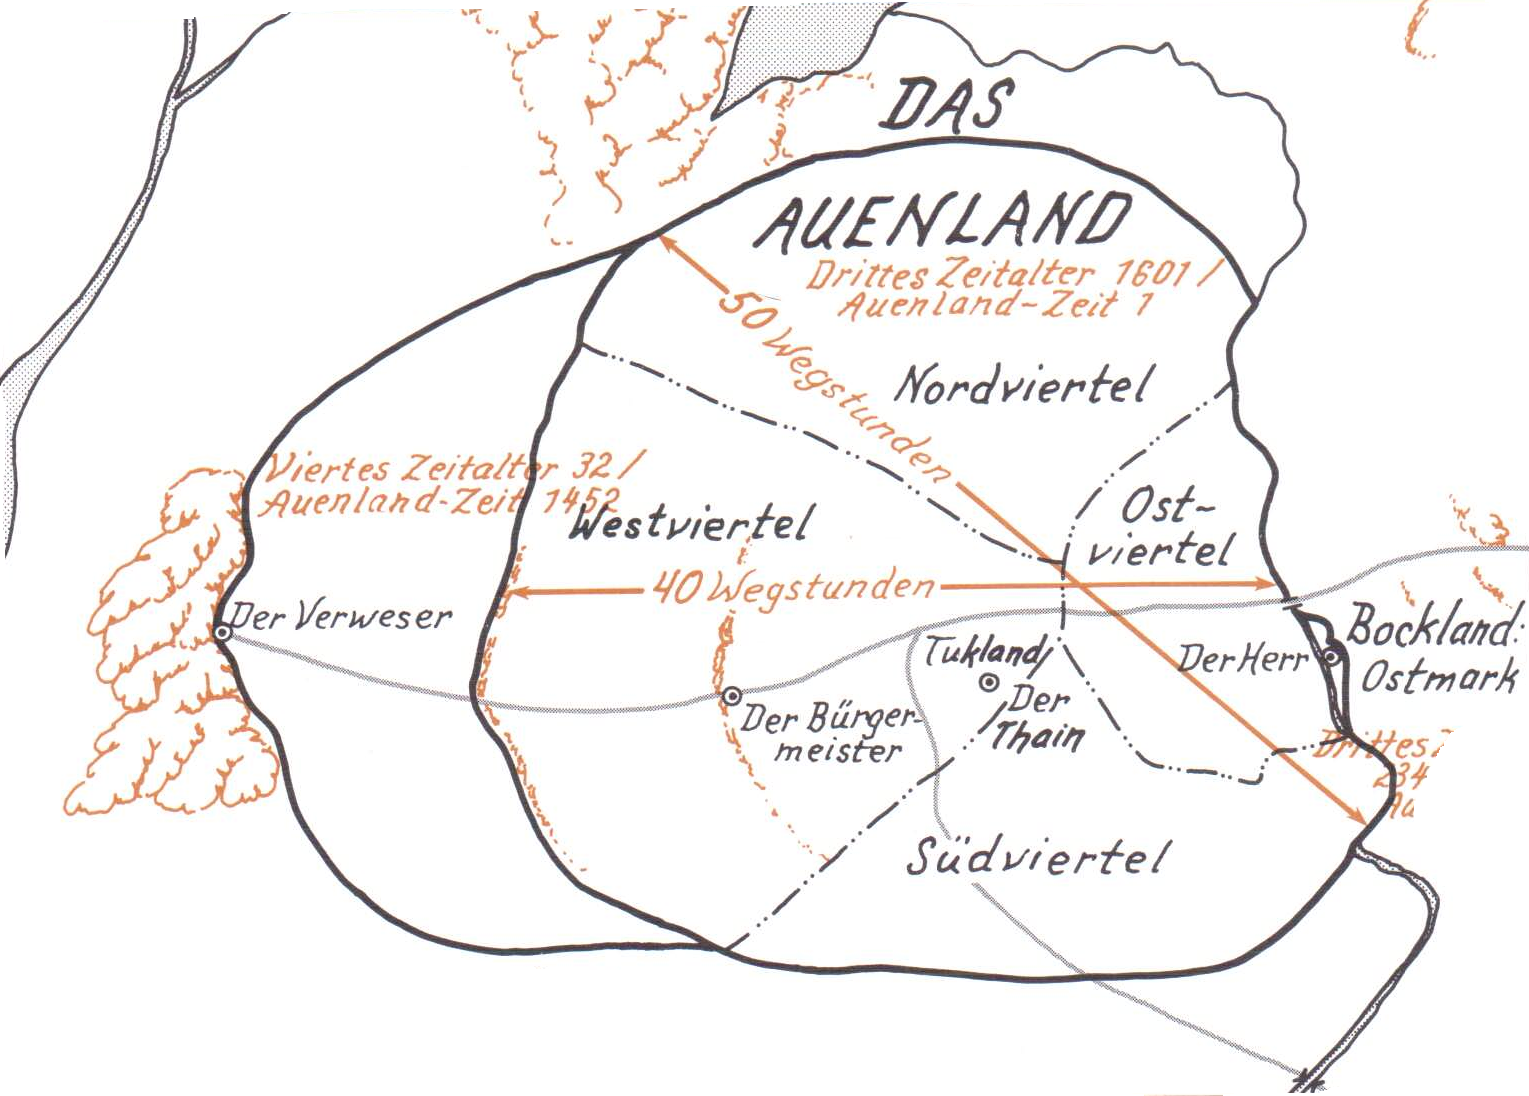 DAS
AUENLAND
Drittes Zeitalter 1601/
Auenland-Zeit 1
50 Wegstunden
Nordviertel
Viertes Zeitalter 32/
Auenland-Zeit 1452
Westviertel
Ost-
viertel
40 Wegstunden
Der Verweser
Bockland:
Ostmark
Tukland/
Der
Thain
Der Herr
Der Bürger-
meister
Drittes
234
Au
Südviertel